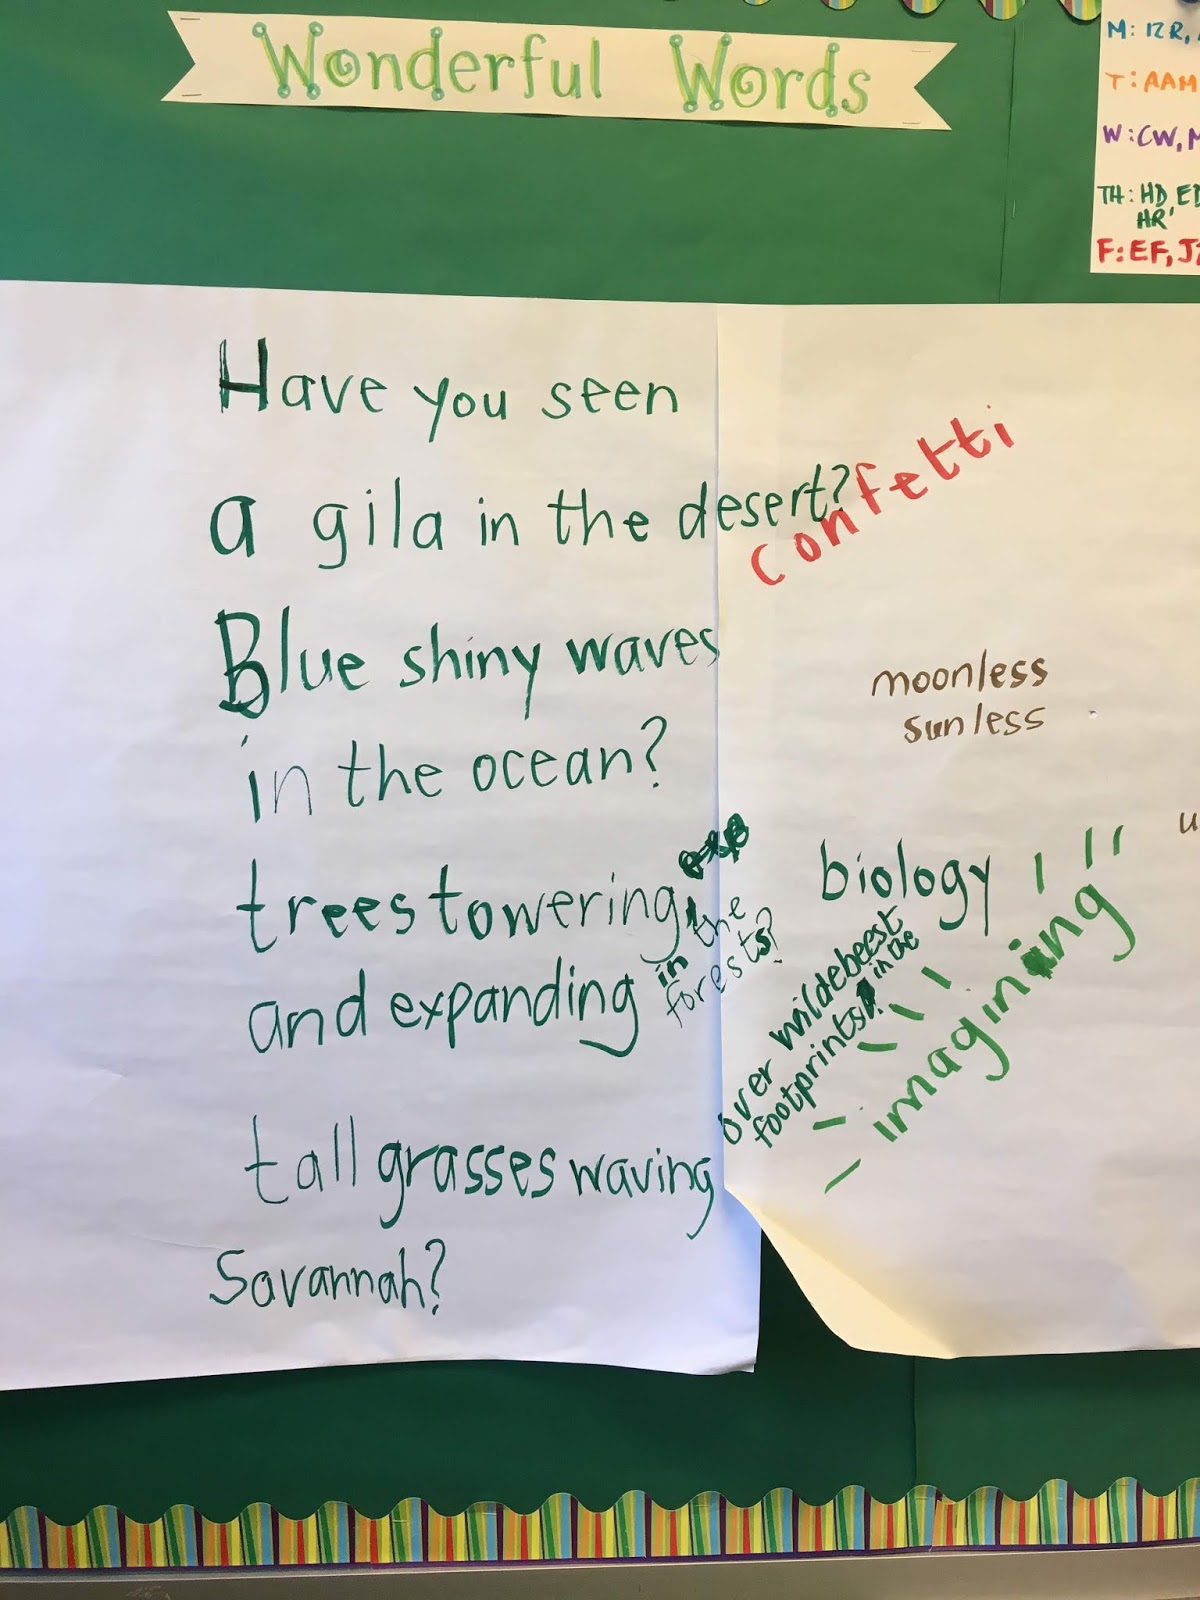 Wonderful Words
M: 12R,
T: AAM
W: CW, M
TH: HD, ED
HR,
F: EF, J
Have you seen
a gila in the desert?
confetti
Blue shiny waves
in the ocean?
moonless
sunless
u
trees towering
in the
forests?
and expanding
biology
imagining
tall grasses waving
over wildebeest
footprints? in the
Savannah?